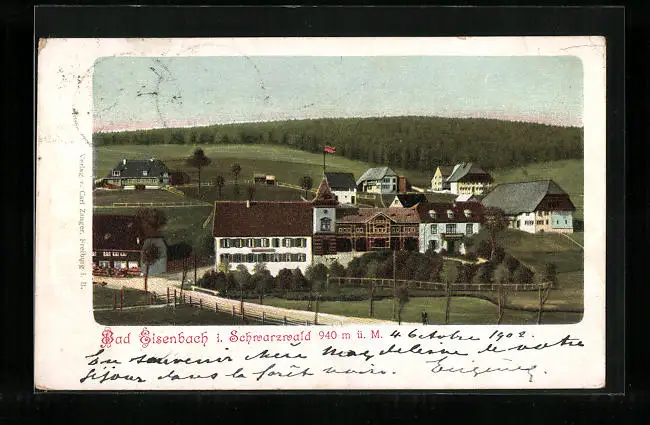 Verlag v. Carl Zanger, Freiburg i. B.
Bad Eisenbach i. Schwarzwald 940 m ü. M.
4 Octobre 1902
En souvenir chère Magdeleine de votre
séjour dans la forêt noire.